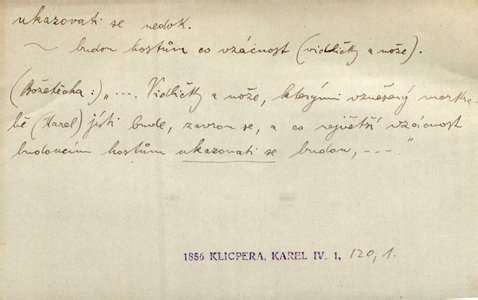 ukazovati se nedok.
~ budou hostům co vzácnost (vidličky a nože).
(Božetěcha:) „--. Vidličky a nože, kterými vznešený markra-
bě (Karel) jísti bude, zavrou se, a co největší vzácnost
budoucím hostům ukazovati se budou, -.--"
1856 KLICPERA, KAREL IV. 1, 120, 1.